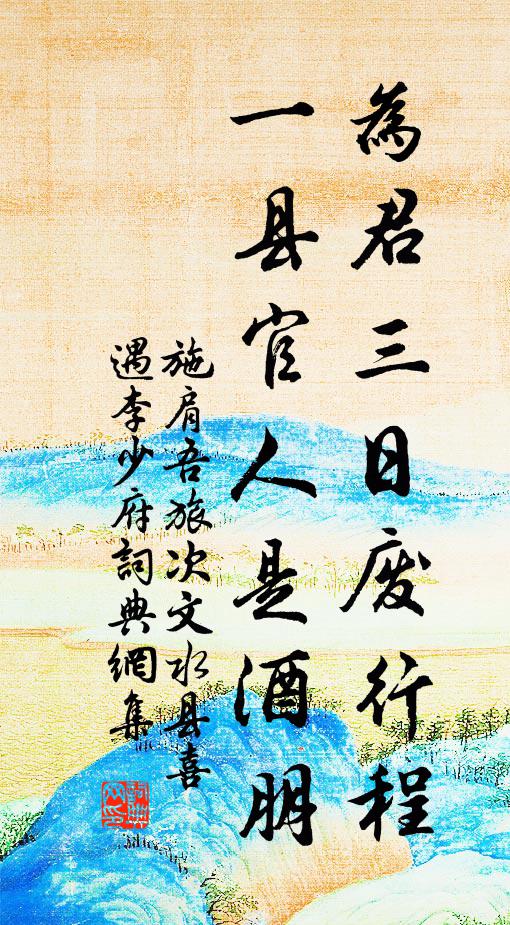 為君三日废行程
一县官人是酒朋
施肩吾旅次文水县喜
遇李少府詞典網集